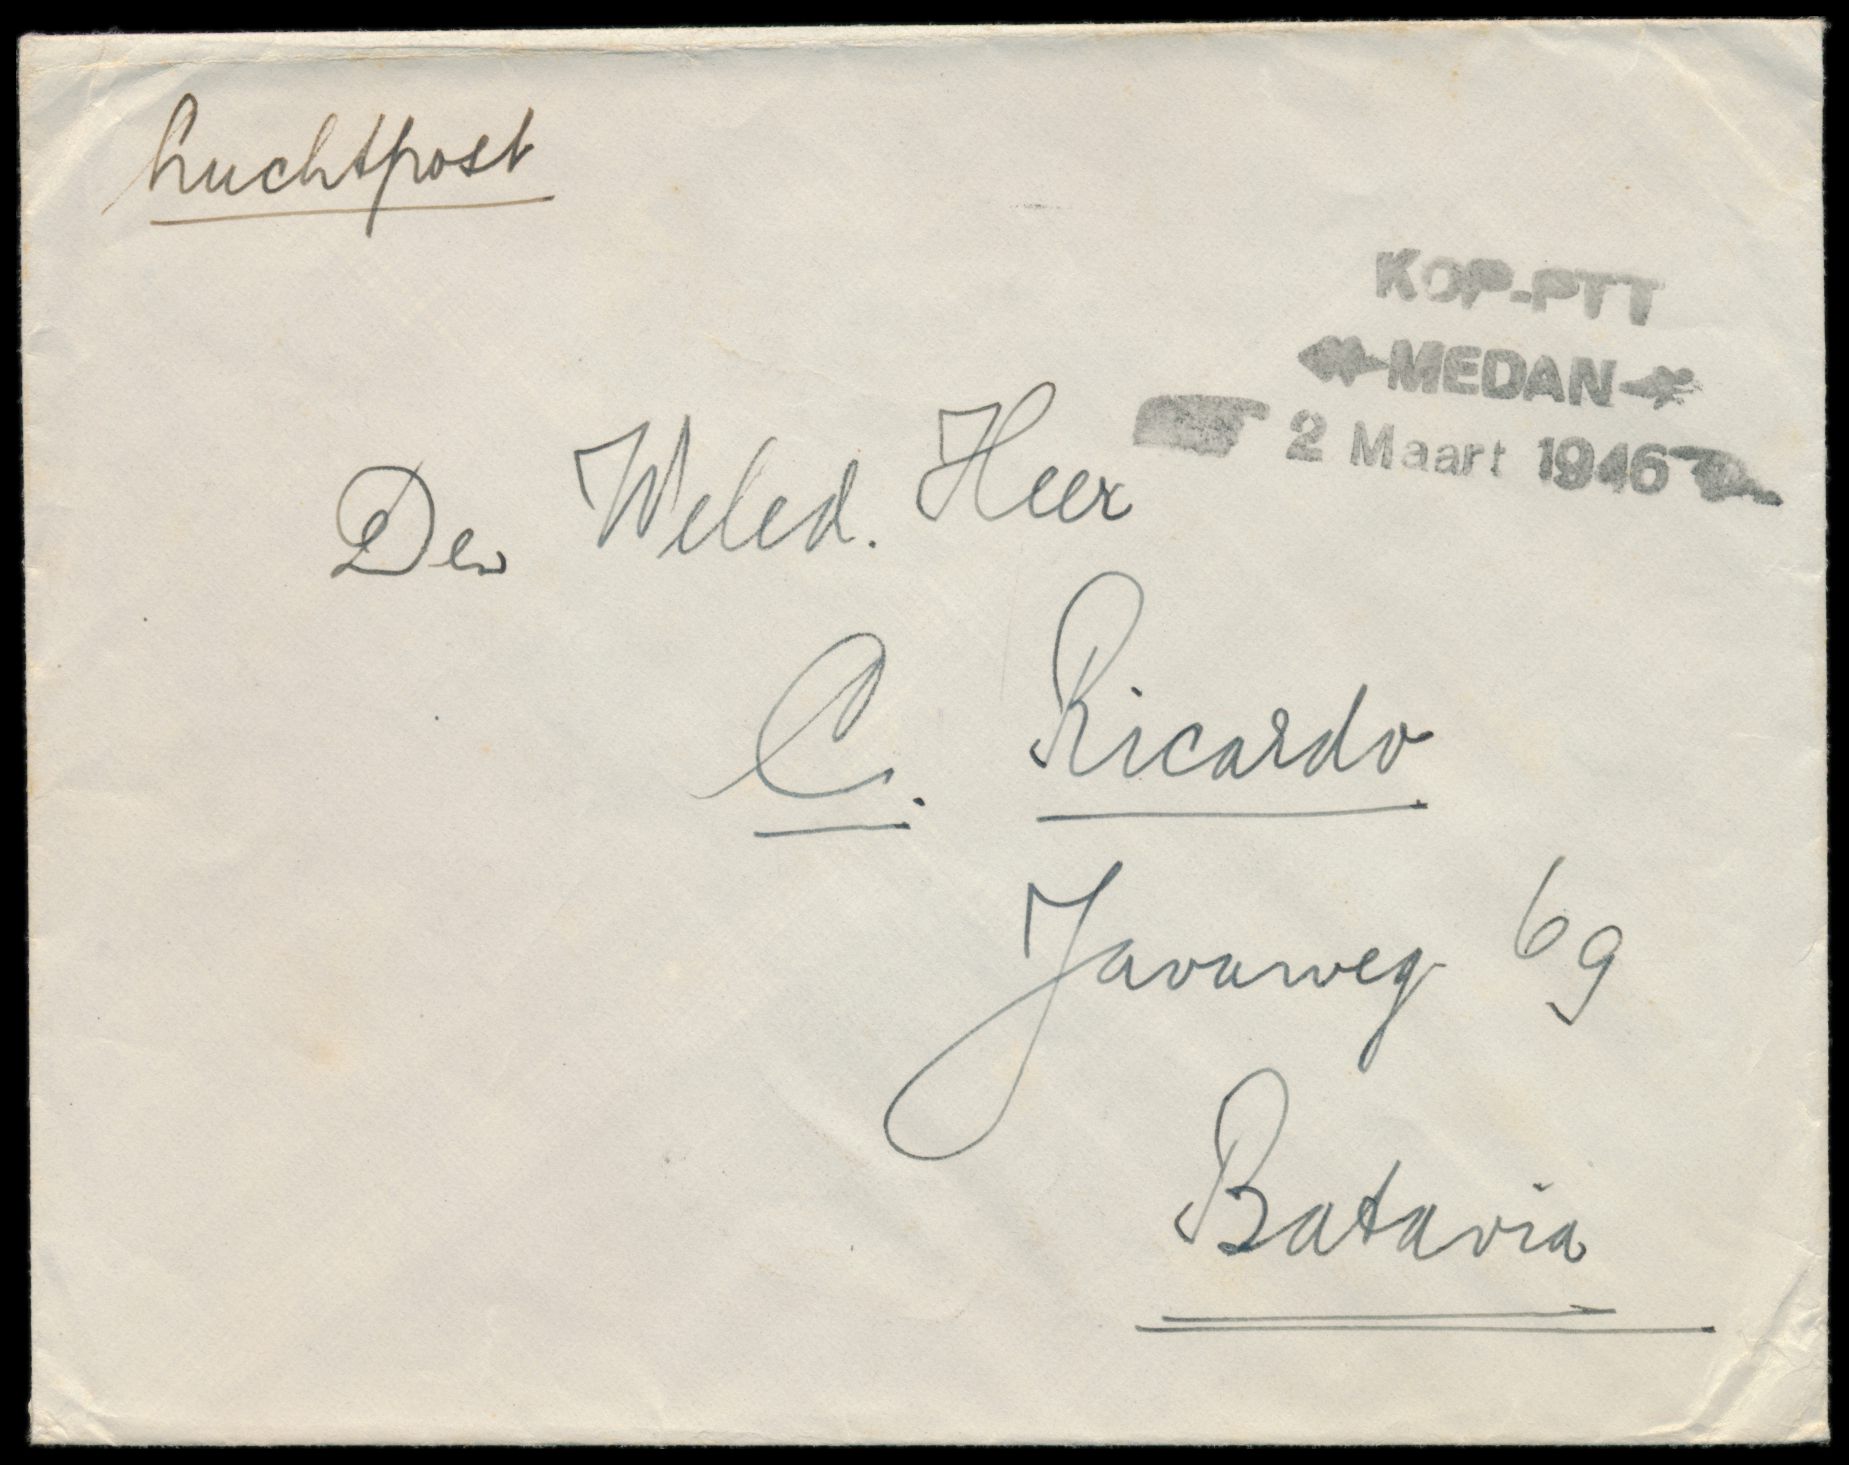 Luchtpost
KOP-PTT
MEDAN
2 Maart 1946
Den Weled. Heer
C. Ricardo
Javaweg 69
Batavia